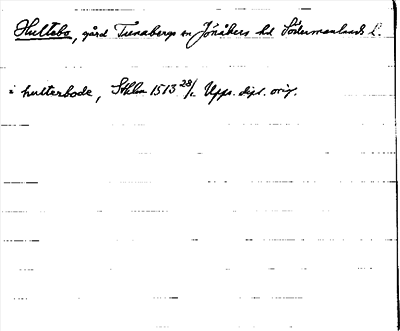 Hultebo, gård Tunabergs sn Jönåkers hd Södermanlands l.
i hulterbode, Sthlm 1513 28/1 Upps. dipl. orig.